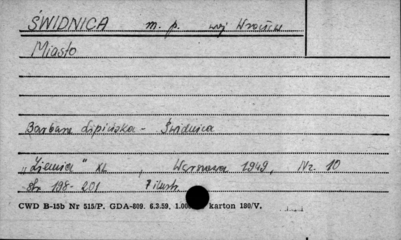 ŚWIDNICA m. p. woj Wrocław
Miasto
Barbara Lipińska - Świdnica
"Ziemia" XL, Warszawa 1949, Nr. 10
str. 198-201 7 ilustr.
CWD B-15b Nr 515/P. GDA-809. 6.3.59. 1.00 karton 180/V.